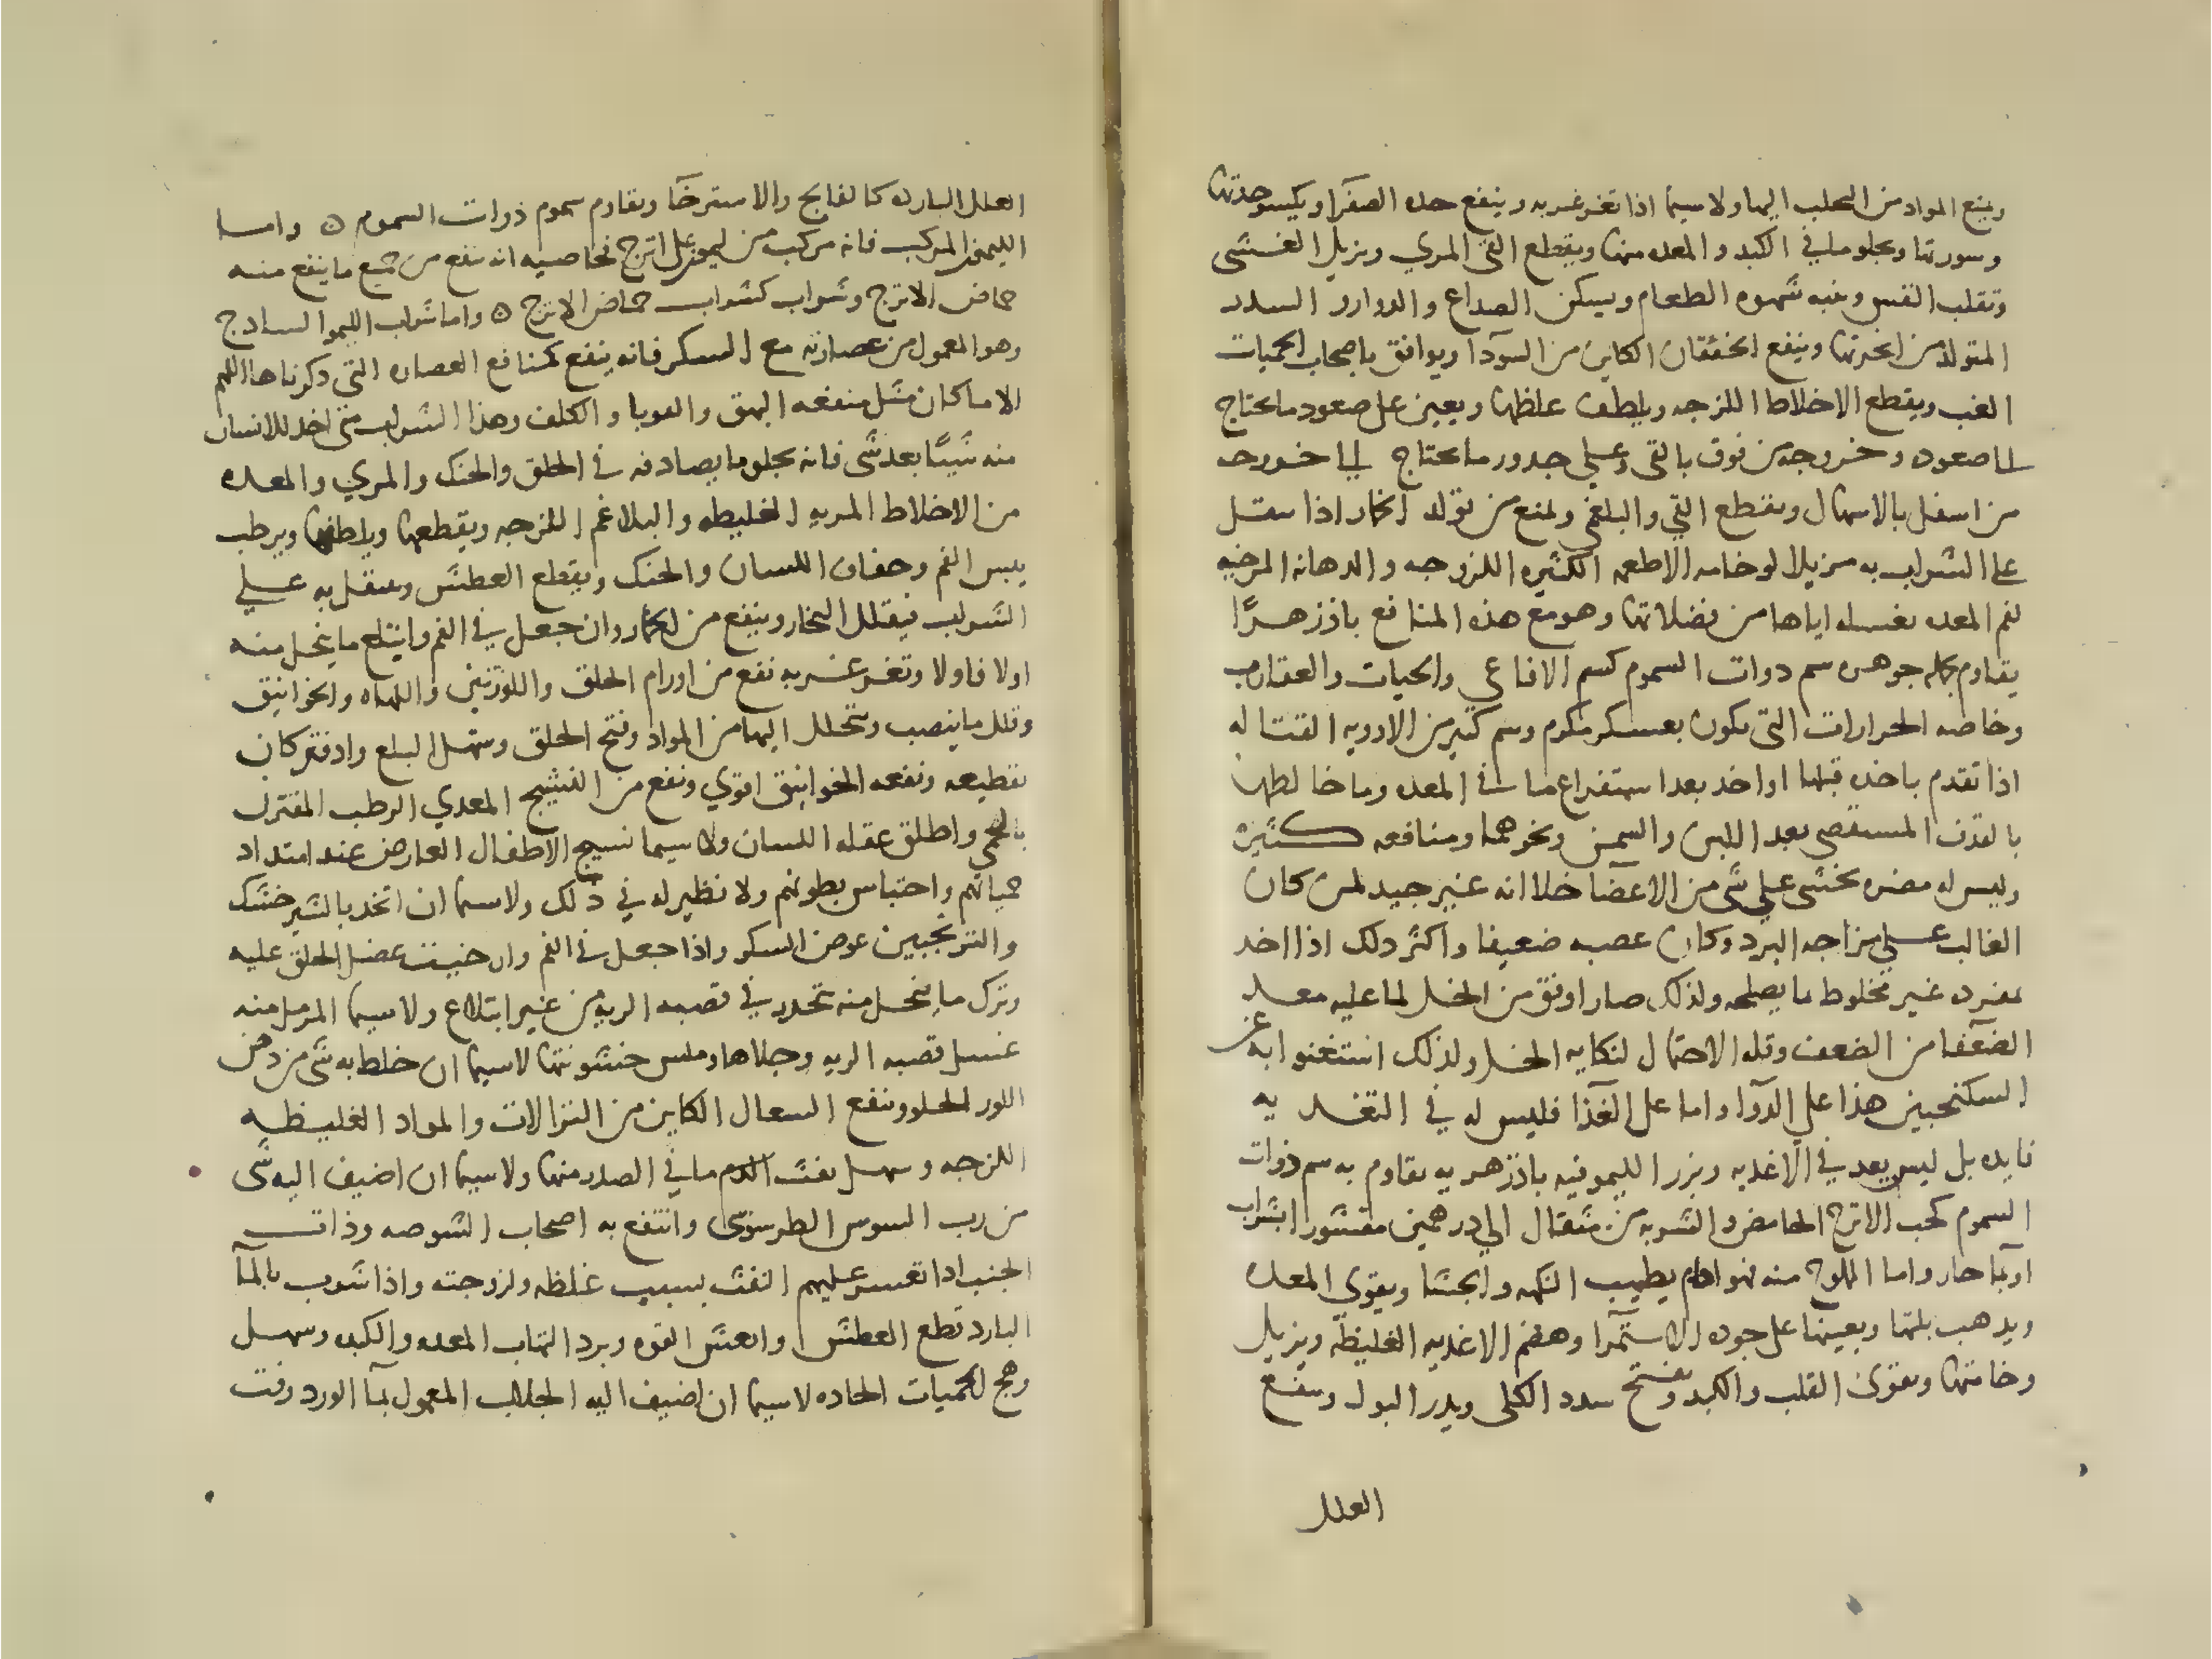 ويمنع المواد من التحلب اليها ولا سيما اذا تغرغر به وينفع حده الصفرا ويكسر حدتها
وسورتها ويجلو ما في الكبد والمعده منها ويقطع القي المري ويزيل الغشى
وتقلب النفس وينبه شهوه الطعام ويسكن الصداع والدوار والسدر
المتولد من ابخرتها وينفع الخفقان الكاين من السودآ ويوافق باصحاب الحميات
الغب ويقطع الاخلاط اللزجه ويلطف غلظها ويعين على صعود ما يحتاج
الى صعوده وخروجه من فوق بالقي وعلى حدور ما يحتاج الى خروجه
من اسفل بالاسهال ويقطع القي والبلغمي ويمنع من تولد الخمار اذا تنقل
على الشراب به مزيلا لوخامه الاطعمه الكثيره اللزوجه والدهانه المرخيه
لفم المعده بغسله اياها من فضلاتها وهو مع هذه المنافع باذزهرًا
يقاوم بجمله جوهره سم دوات السموم كسم الافاعي والحيات والعقارب
وخاصه الجرارات التى تكون بعسكر مكرم وسم كثير من الادويه القتاله
اذا تقدم باخذه قبلها او اخد بعد استفراغ ما في المعده وما خالطها
بالقذف المستقصى بعد اللبن والسمن ونحوهما ومنافعه كثيره
وليس له مضره تخشى على شى من الاعضآ خلا انه غير جيد لمن كان
الغالب على مزاجه البرد وكان عصبه ضعيفا واكثر دلك اذا اخد
بمفرده غير مخلوط بما يصلحه ولذلك صار اوفق من الخل لما عليه معد
الضعفآ من الضعف وقله الاحتمال لنكايه الخل ولذلك استغنوا به عن
السكنجبين هذا على الدوآ واما على الغذآ فليس له في التغديه
فايده بل ليس يعد في الاغديه وبزر الليمو فيه باذزهريه تقاوم به سم ذوات
السموم كحب الاترج الحامض والشربه من مثقال الى درهمين مقشورا بشراب
او بمآ حار واما الملوح منه فهو ادام يطيب النكهه والجشا ويقوي المعده
ويدهب بلتها ويعينها على جوده الاستمرآ وهضم الاغديه الغليظه ويزيل
وخامتها ويقوى القلب والكبد ويفتح سدد الكلى ويدر البول وينفع
العلل
العلل البارده كالفالج والاسترخآ وتقاوم سموم ذوات السموم ه واما
الليمو المركب فانه مركب من ليمو على اترج بخاصيه انه ينفع من جميع ما ينفع منه
حماض الاترج وشراب كشراب حماض الاترج ه واما شراب الليمو السادج
وهو المعمول من عصارته مع السكر فانه ينفع كمنافع العصاره التى دكرناها اللهم
الا ما كان مثل منفعه البهق والقوبا والكلف وهذا الشراب متى اخد للانسان
منه شيًا بعد شى فانه يجلو ما يصادفه في الحلق والحنك والمري والمعده
من الاخلاط المريه الغليظه والبلاغم اللزجه ويقطعها ويلطفها ويرطب
يبس الفم وجفاف اللسان والحنك ويقطع العطش وينتقل به على
الشراب فيقلل البخار وينفع من الخمار وان جعل في الفم وابتلع ما ينحل منه
اولا فاولا وتغرغر به نفع من اورام الحلق واللوزتين واللهاه والخوانيق
وقلل ما ينصب ويتحلل اليها من المواد وفتح الحلق وسهل البلع وادفتر كان
تقطيعه ونفعه الخوانيق اقوي ونفع من التشنج المعدي الرطب المقترن
بالحمى واطلق عقله اللسان ولا سيما تشنج الاطفال العارض عند امتداد
حمياتهم واحتباس بطونهم ولا نظير له في ذلك ولا سيما ان اتخد بالشيرخشك
والترنجبين عوض السكر واذا جعل في الفم وان حنيت عضل الحلق عليه
وترك ما ينحل منه يتحدر في قصبه الريه من غير ابتلاع ولا سيما المرمل منه
غسل قصبه الريه وجلاها وملس خشونتها لا سيما ان خلط به شى من دهن
اللوز الحلو ونفع السعال الكاين من النزالات والمواد الغليظه
اللزجه وسهل نفث الدم ما في الصدر منها ولا سيما ان اضيف اليه شى
من رب السوس الطرسوسى وانتفع به اصحاب الشوصه وذات
الجنب اذا تعسر عليهم النفث بسبب غلظه ولزوجته واذا شرب بالمآ
البارد قطع العطش وانعش القوه وبرد التهاب المعده والكبد وسهل
وهج الحميات الحاده لا سيما ان اضيف اليه الجلاب المعمول بمآ الورد وقت